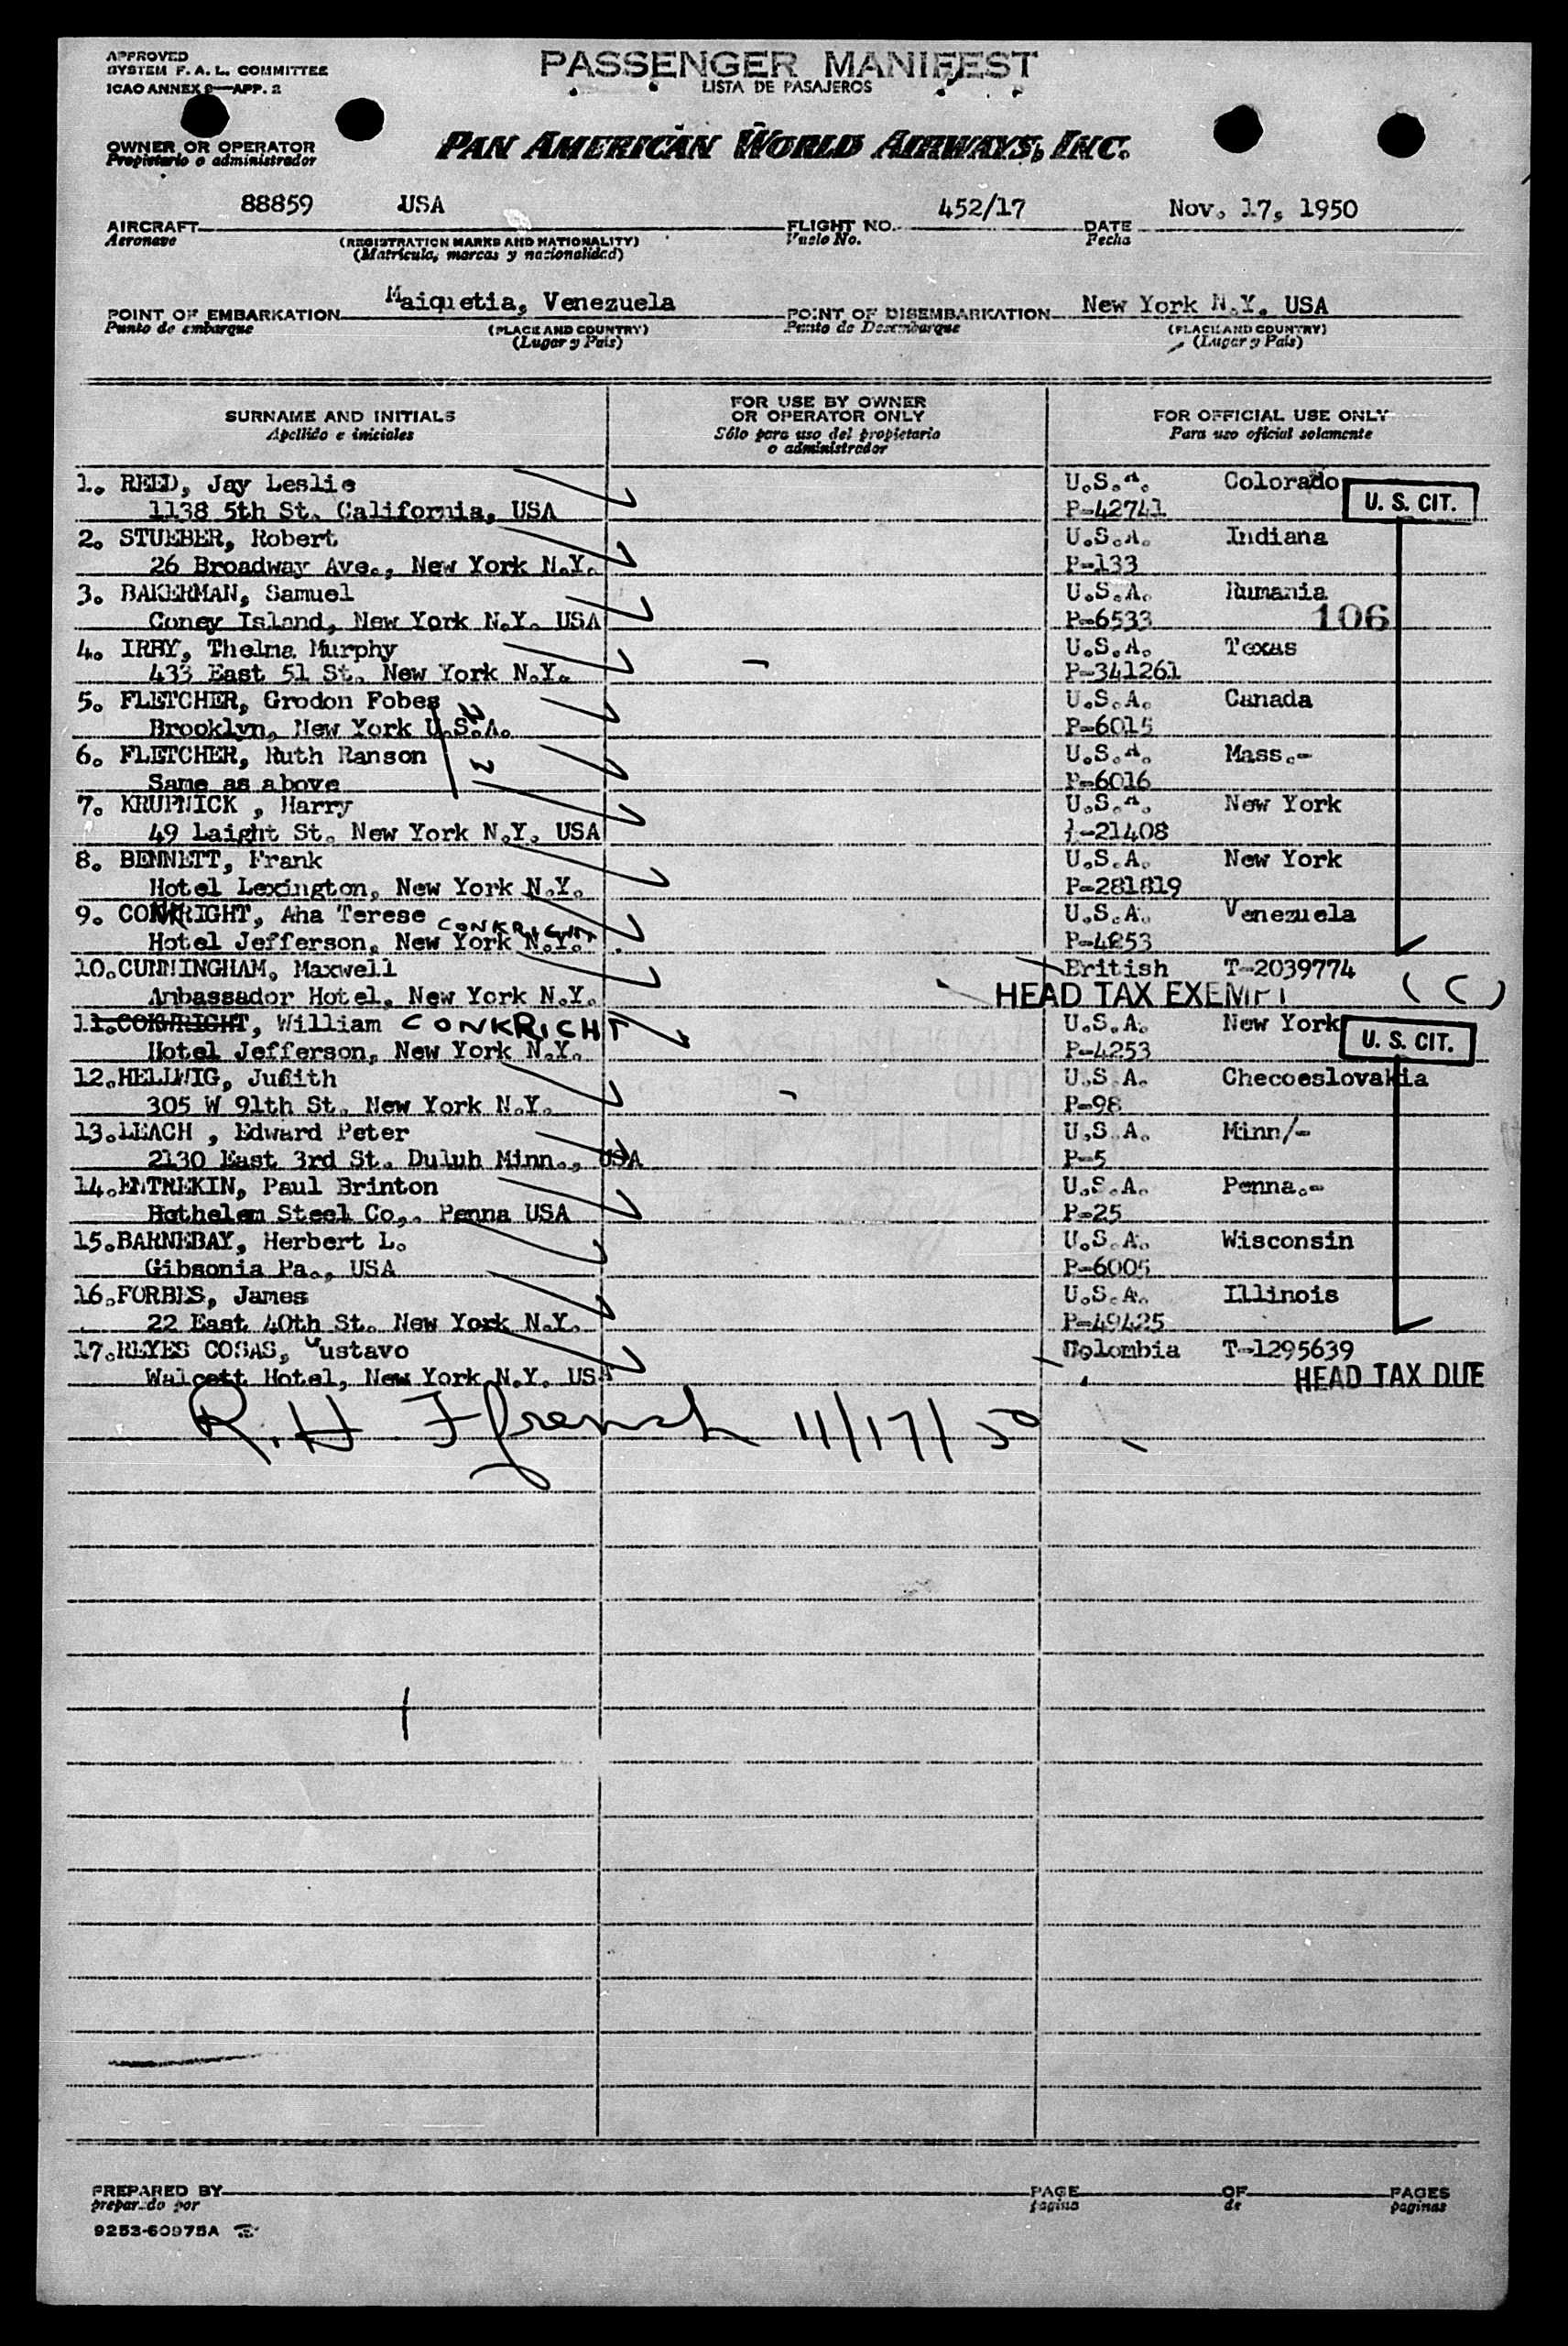 APPROVED
SYSTEM F. A. L. COMMITTEE
ICAO ANNEX 9—APP. 2
PASSENGER MANIFEST
LISTA DE PASAJEROS
OWNER OR OPERATOR
Propietario o administrador
PAN AMERICAN WORLD AIRWAYS, INC.
88859 USA 452/17 Nov. 17, 1950
AIRCRAFT FLIGHT NO. DATE
Aeronave (REGISTRATION MARKS AND NATIONALITY) Vuelo No. Fecha
(Matricula, marcas y nacionalidad)
Maiquetia, Venezuela New York N.Y. USA
POINT OF EMBARKATION POINT OF DISEMBARKATION
Punto de embarque (PLACE AND COUNTRY) Punto de Desembarque (PLACE AND COUNTRY)
(Lugar y Pais) (Lugar y Pais)
SURNAME AND INITIALS FOR USE BY OWNER OR OPERATOR ONLY FOR OFFICIAL USE ONLY
Apellido e iniciales Sólo para uso del propietario o administrador Para uso oficial solamente
1. REED, Jay Leslie U.S.A. Colorado
1138 5th St. California, USA P-42741 U. S. CIT.
2. STUEBER, Robert U.S.A. Indiana
26 Broadway Ave., New York N.Y. P-133
3. BAKERMAN, Samuel U.S.A. Rumania
Coney Island, New York N.Y. USA P-6533 106
4. IRBY, Thelma Murphy U.S.A. Texas
433 East 51 St. New York N.Y. P-341261
5. FLETCHER, Grodon Fobes U.S.A. Canada
Brooklyn, New York U.S.A. P-6015
6. FLETCHER, Ruth Ranson U.S.A. Mass.-
Same as above P-6016
7. KRUPNICK , Harry U.S.A. New York
49 Laight St. New York N.Y. USA -21408
8. BENNETT, Frank U.S.A. New York
Hotel Lexington, New York N.Y. P-281819
9. CONKRIGHT, Aha Terese CONKRIGHT U.S.A. Venezuela
Hotel Jefferson, New York N.Y. P-4253
10.CUNNINGHAM, Maxwell British T-2039774
Ambassador Hotel, New York N.Y. HEAD TAX EXEMPT (C)
11.COKWRIGHT, William CONKRIGHT U.S.A. New York
Hotel Jefferson, New York N.Y. P-4253 U. S. CIT.
12.HELLWIG, Judith U.S.A. Checoeslovakia
305 W 91th St. New York N.Y. P-98
13.LEACH , Edward Peter U.S.A. Minn/-
2130 East 3rd St. Duluh Minn., USA P-5
14.ENTREKIN, Paul Brinton U.S.A. Penna.-
Bethelem Steel Co,. Penna USA P-25
15.BARNEBAY, Herbert L. U.S.A. Wisconsin
Gibsonia Pa., USA P-6005
16.FORBES, James U.S.A. Illinois
22 East 40th St. New York N.Y. P-49425
17.REYES COSAS, Gustavo Colombia T-1295639
Walcott Hotel, New York N.Y. USA HEAD TAX DUE
R. H. Ffrench 11/17/50
PREPARED BY PAGE OF PAGES
preparado por pagina de paginas
9253-60975A